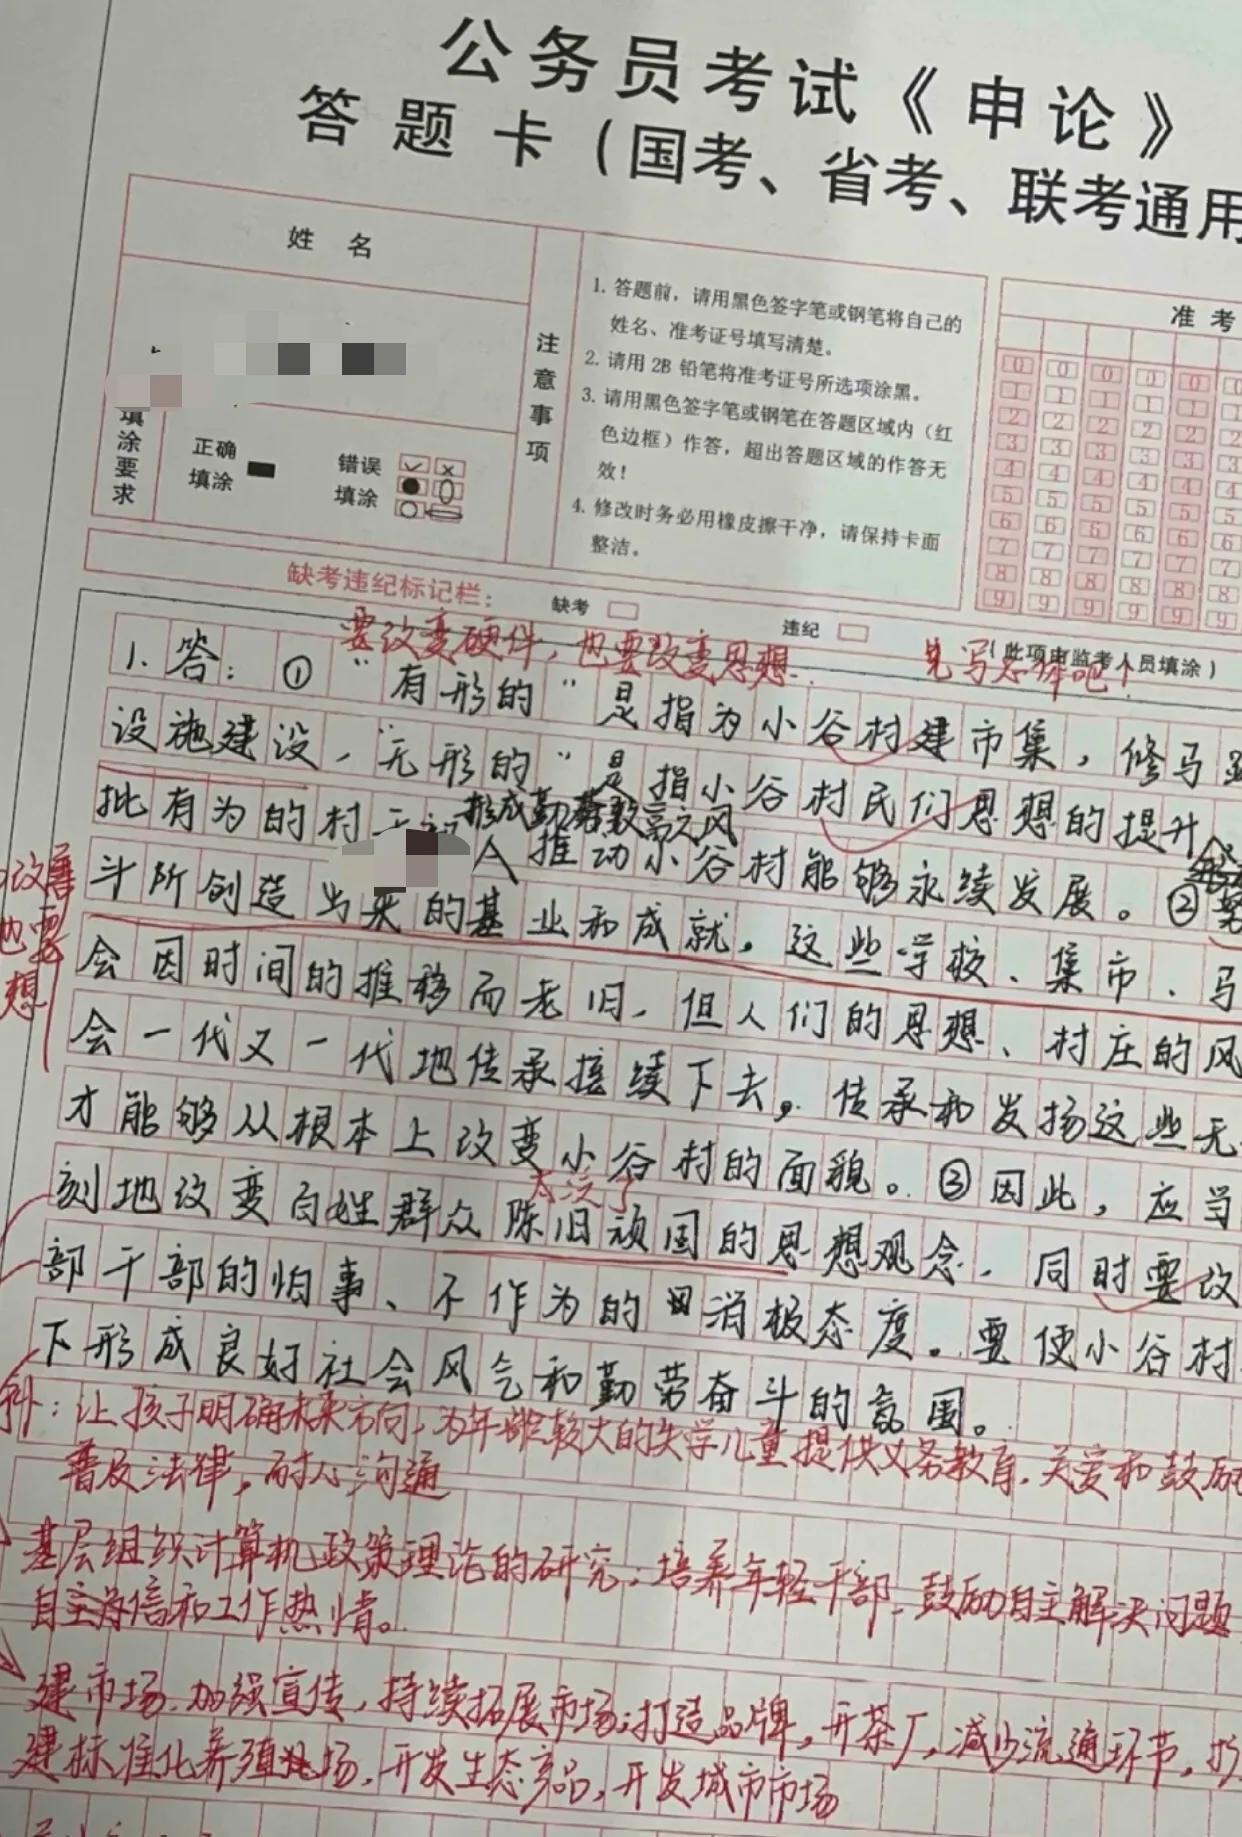 公务员考试《申论》
答题卡（国考、省考、联考通用
姓 名
准考
注意事项
1. 答题前，请用黑色签字笔或钢笔将自己的
姓名、准考证号填写清楚。
2. 请用 2B 铅笔将准考证号所选项涂黑。
3. 请用黑色签字笔或钢笔在答题区域内（红
色边框）作答，超出答题区域的作答无
效！
4. 修改时务必用橡皮擦干净，请保持卡面
整洁。
填涂要求
正确
填涂
错误
填涂
0 0 0 0 0 0
1 1 1 1 1 1
2 2 2 2 2 2
3 3 3 3 3 3
4 4 4 4 4 4
5 5 5 5 5 5
6 6 6 6 6 6
7 7 7 7 7 7
8 8 8 8 8 8
9 9 9 9 9 9
缺考违纪标记栏：
缺考
违纪
（此项由监考人员填涂）
要改变硬件，也要改变思想
先写总
1. 答：① “有形的”是指为小谷村建市集，修马
设施建设，“无形的”是指小谷村民们思想的提升
批有为的村
形成勤劳致富之风
推动小谷村能够永续发展。②
斗所创造出来的基业和成就。这些学校、集市、马
会因时间的推移而老旧，但人们的思想、村庄的风
会一代又一代地传承接续下去。传承和发扬这些无
才能够从根本上改变小谷村的面貌。③因此，应当
太泛了
刻地改变百姓群众陈旧顽固的思想观念，同时要改
部干部的怕事、不作为的消极态度。要使小谷村
下形成良好社会风气和勤劳奋斗的氛围。
改善
也要
想
让孩子明确未来方向，为年龄较大的失学儿童提供义务教育，关爱和鼓励
普及法律，耐心沟通
基层组织计算机政策理论的研究；培养年轻干部，鼓励自主解决问题
自主自信和工作热情。
建市场，加强宣传，持续拓展市场；打造品牌，开茶厂，减少流通环节，
建标准化养殖场，开发生态产品，开发城市市场